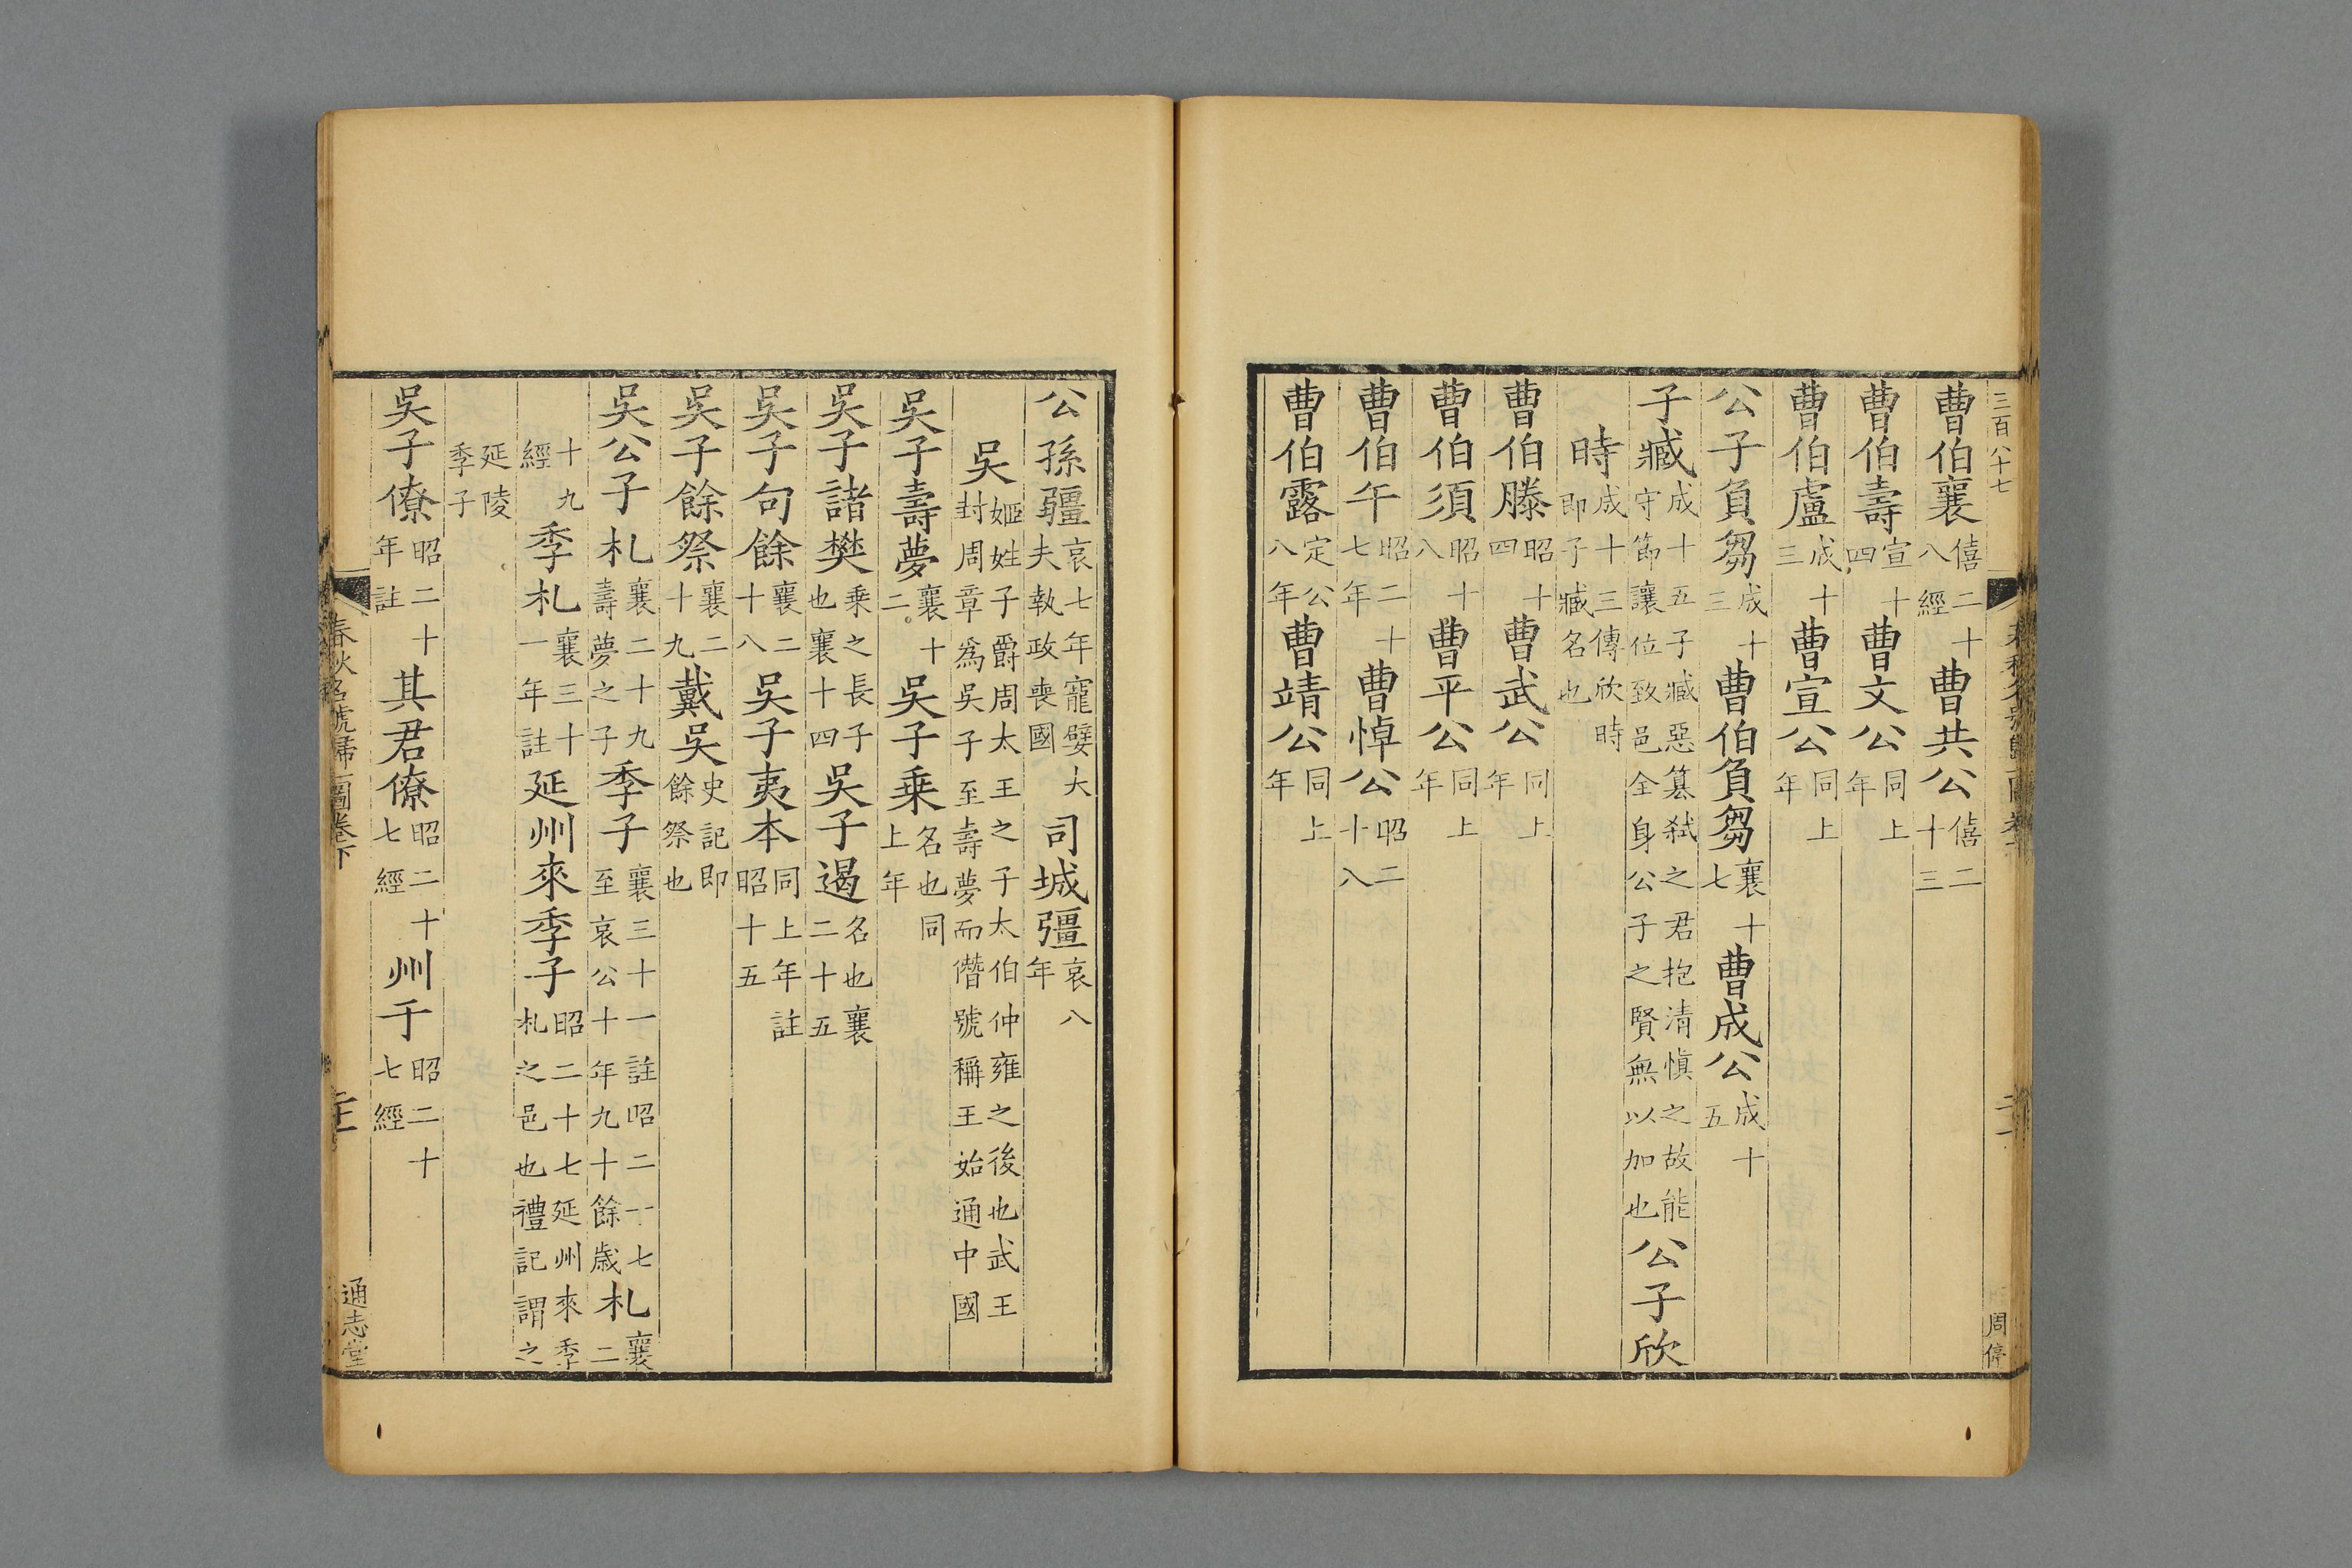 三百八十七
曹伯襄僖二十八經曹共公僖二十三
曹伯壽宣十四曹文公同上年
曹伯盧成十三曹宣公同上年
公子負芻成十三曹伯負芻襄十七曹成公成十五
子臧成十五子臧惡簒弑之君抱清愼之故能守節讓位致邑全身公子之賢無以加也公子欣
時成十三傳欣時即子臧名也
曹伯滕昭十四曹武公同上年
曹伯須昭十八曹平公同上年
曹伯午昭二十七年曹悼公昭二十八
曹伯露定公八年曹靖公同上年
周停
公孫彊哀七年寵嬖大夫執政喪國司城彊哀八年
吳姬姓子爵周太王之子太伯仲雍之後也武王封周章爲吳子至壽夢而僭號稱王始通中國
吳子壽夢襄十二吳子乗名也同上年
吳子諸樊乗之長子也襄十四吳子遏名也襄二十五
吳子句餘襄二十八吳子夷本同上年註昭十五
吳子餘祭襄二十九戴吳史記即餘祭也
吳公子札襄二十九壽夢之子季子襄三十一註昭二十七至哀公十年九十餘歳札襄二
十九經季札襄三十一年註延州來季子昭二十七延州來季札之邑也禮記謂之
延陵季子
吳子僚昭二十年註其君僚昭二十七經州于昭二十七經
春秋名號歸一圖卷下
二十一
通志堂